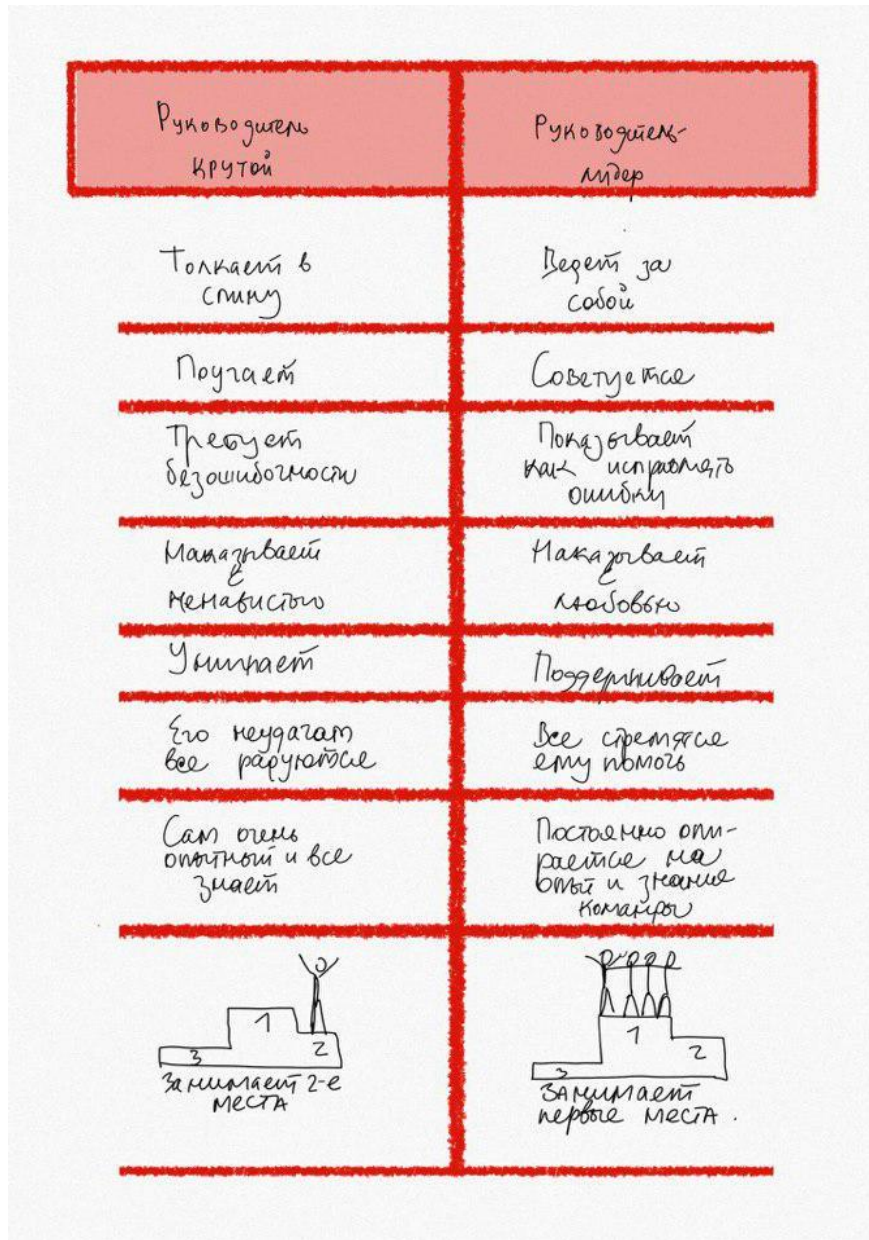 Руководитель
крутой
Руководитель-
лидер
Толкает в
спину
Ведет за
собой
Поучает
Советуется
Требует
безошибочности
Показывает
как исправлять
ошибки
Наказывает
с
ненавистью
Наказывает
с
любовью
Унижает
Поддерживает
Его неудачам
все радуются
Все стремятся
ему помочь
Сам очень
опытный и все
знает
Постоянно опи-
рается на
опыт и знание
команды
1
3 2
Занимает 2-е
места
1
3 2
Занимает
первые места.